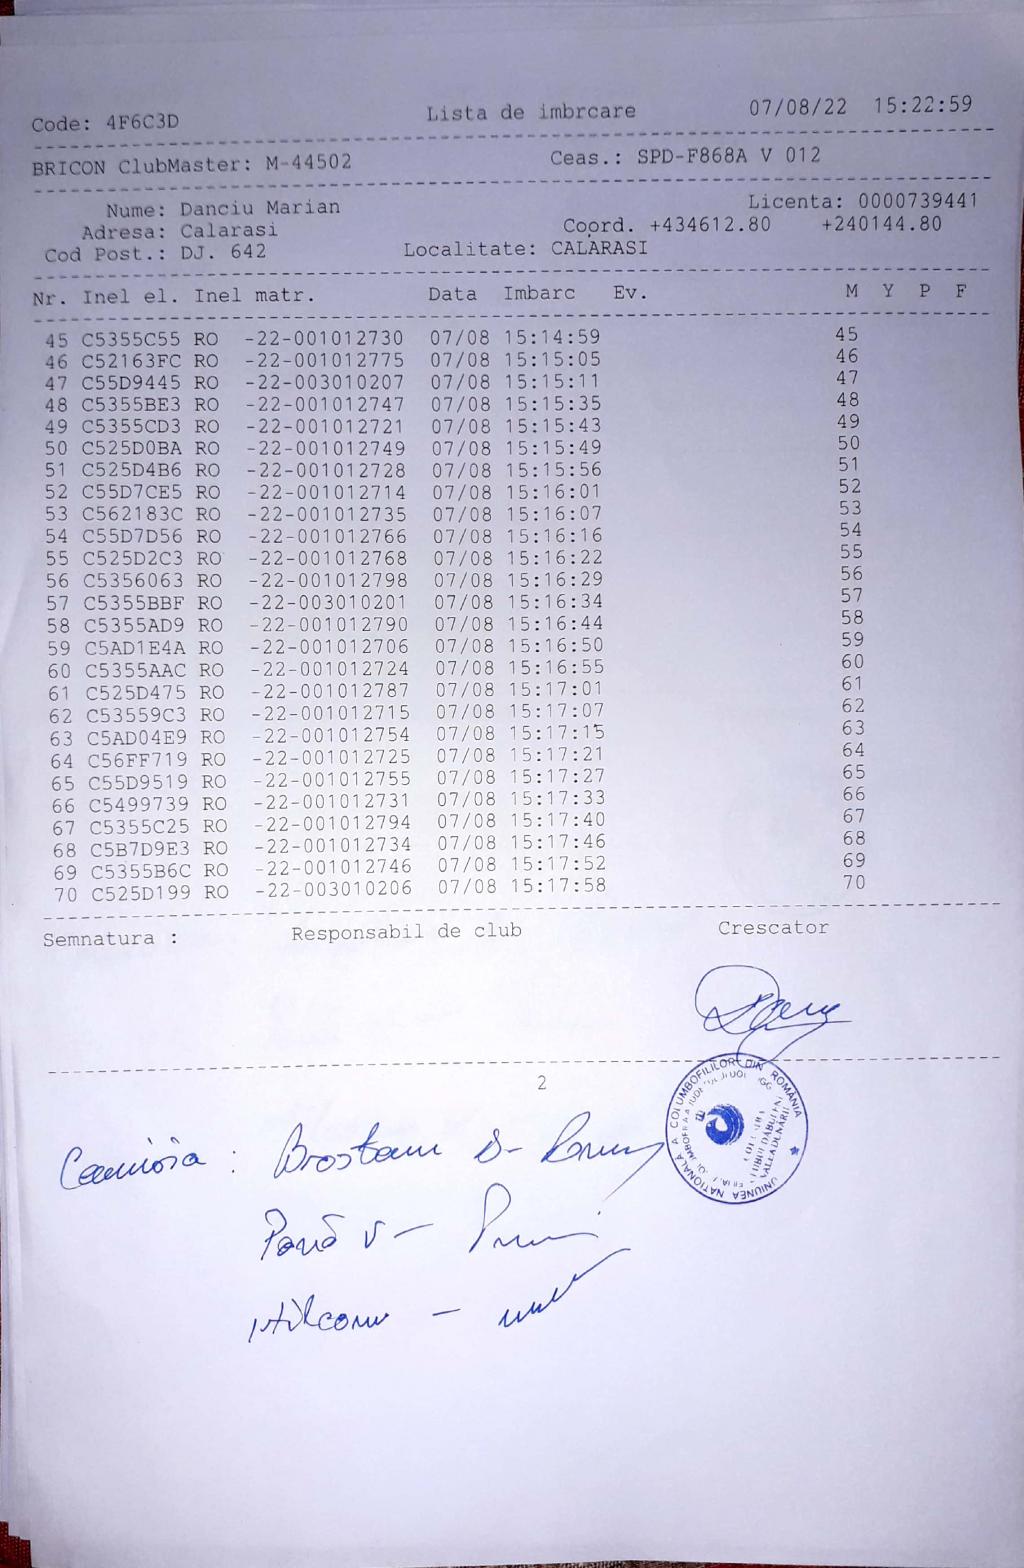 Code: 4F6C3D Lista de imbrcare 07/08/22 15:22:59
BRICON ClubMaster: M-44502 Ceas.: SPD-F868A V 012
Nume: Danciu Marian Licenta: 0000739441
Adresa: Calarasi Coord. +434612.80 +240144.80
Cod Post.: DJ. 642 Localitate: CALARASI
Nr. Inel el. Inel matr. Data Imbarc Ev. M Y P F
45 C5355C55 RO -22-001012730 07/08 15:14:59 45
46 C52163FC RO -22-001012775 07/08 15:15:05 46
47 C55D9445 RO -22-003010207 07/08 15:15:11 47
48 C5355BE3 RO -22-001012747 07/08 15:15:35 48
49 C5355CD3 RO -22-001012721 07/08 15:15:43 49
50 C525D0BA RO -22-001012749 07/08 15:15:49 50
51 C525D4B6 RO -22-001012728 07/08 15:15:56 51
52 C55D7CE5 RO -22-001012714 07/08 15:16:01 52
53 C562183C RO -22-001012735 07/08 15:16:07 53
54 C55D7D56 RO -22-001012766 07/08 15:16:16 54
55 C525D2C3 RO -22-001012768 07/08 15:16:22 55
56 C5356063 RO -22-001012798 07/08 15:16:29 56
57 C5355BBF RO -22-003010201 07/08 15:16:34 57
58 C5355AD9 RO -22-001012790 07/08 15:16:44 58
59 C5AD1E4A RO -22-001012706 07/08 15:16:50 59
60 C5355AAC RO -22-001012724 07/08 15:16:55 60
61 C525D475 RO -22-001012787 07/08 15:17:01 61
62 C53559C3 RO -22-001012715 07/08 15:17:07 62
63 C5AD04E9 RO -22-001012754 07/08 15:17:15 63
64 C56FF719 RO -22-001012725 07/08 15:17:21 64
65 C55D9519 RO -22-001012755 07/08 15:17:27 65
66 C5499739 RO -22-001012731 07/08 15:17:33 66
67 C5355C25 RO -22-001012794 07/08 15:17:40 67
68 C5B7D9E3 RO -22-001012734 07/08 15:17:46 68
69 C5355B6C RO -22-001012746 07/08 15:17:52 69
70 C525D199 RO -22-003010206 07/08 15:17:58 70
Semnatura : Responsabil de club Crescator
2
UNIUNEA NATIONALA A COLUMBOFILILOR DIN ROMÂNIA
Pană V -